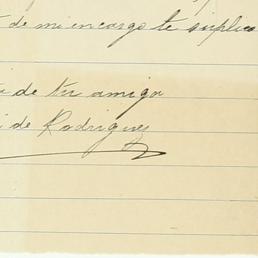 de mi encargo te suplico
de tu amiga
de Rodrigues